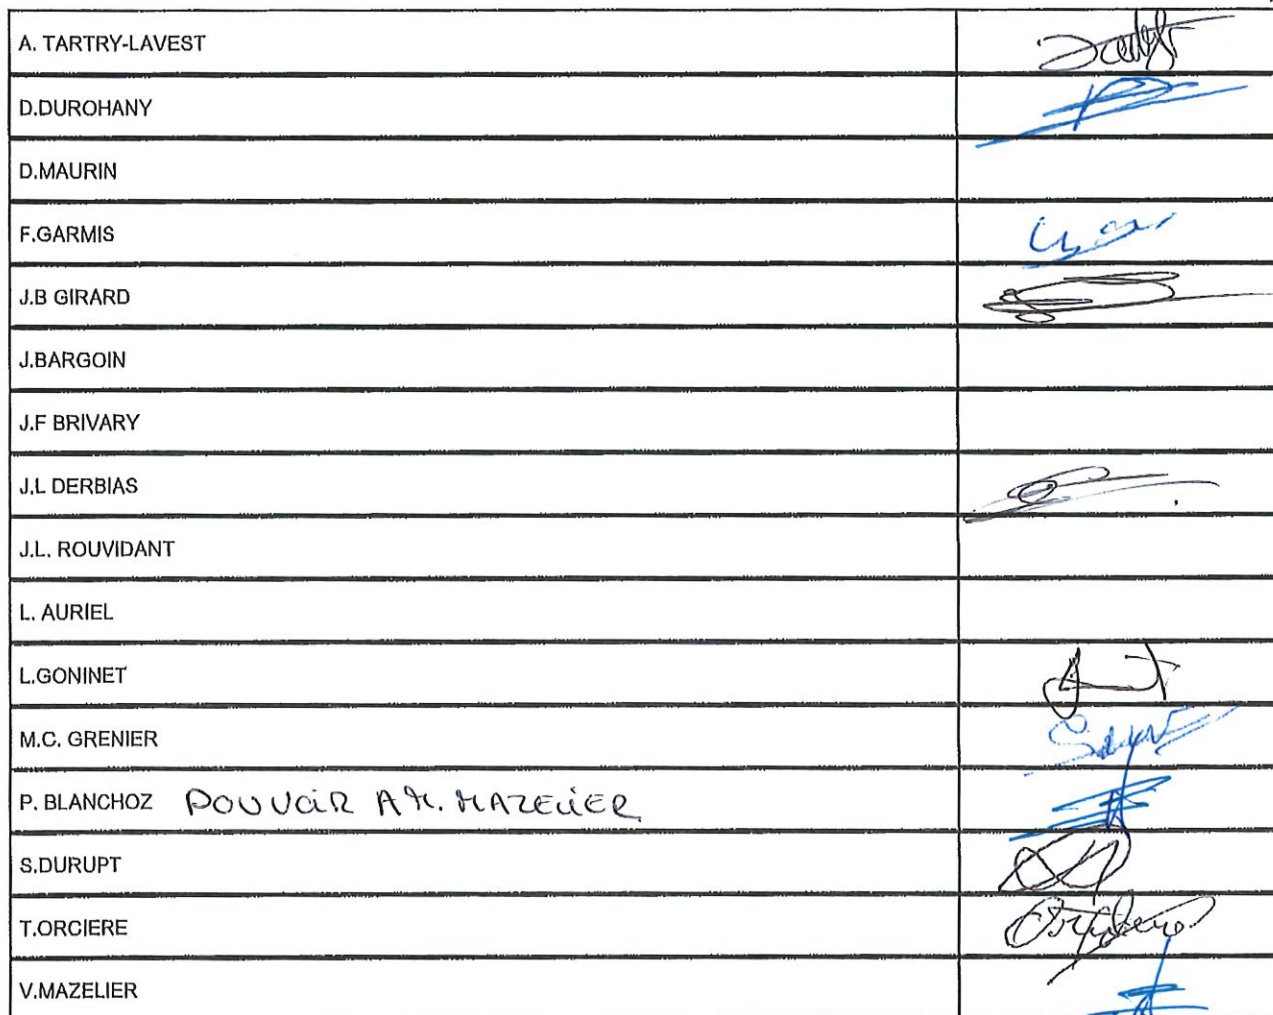 A. TARTRY-LAVEST
D.DUROHANY
D.MAURIN
F.GARMIS
J.B GIRARD
J.BARGOIN
J.F BRIVARY
J.L DERBIAS
J.L. ROUVIDANT
L. AURIEL
L.GONINET
M.C. GRENIER
P. BLANCHOZ POUVOIR A M. MAZELIER
S.DURUPT
T.ORCIERE
V.MAZELIER